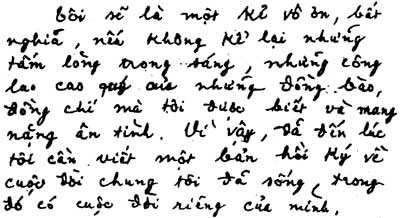 Tôi sẽ là một kẻ vô ơn, bất
nghĩa, nếu không kể lại những
tấm lòng trong sáng, những công
lao cao quý của những đồng bào,
đồng chí mà tôi được biết và mang
nặng ân tình. Vì vậy, đã đến lúc
tôi cần viết một bản hồi ký về
cuộc đời chúng tôi đã sống, trong
đó có cuộc đời riêng của mình.